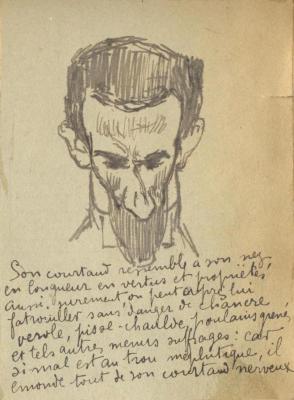 Son courtaud ressemble à son nez
en longueur en vertus et propriétés,
Aussi, purement on peut après lui
patrouiller sans danger de chancre
verole, pisse-chaulde, poulains grenés
et tels autres menus suffrages : car
si mal est au trou méphitique, il
émonde tout de son courtaud nerveux